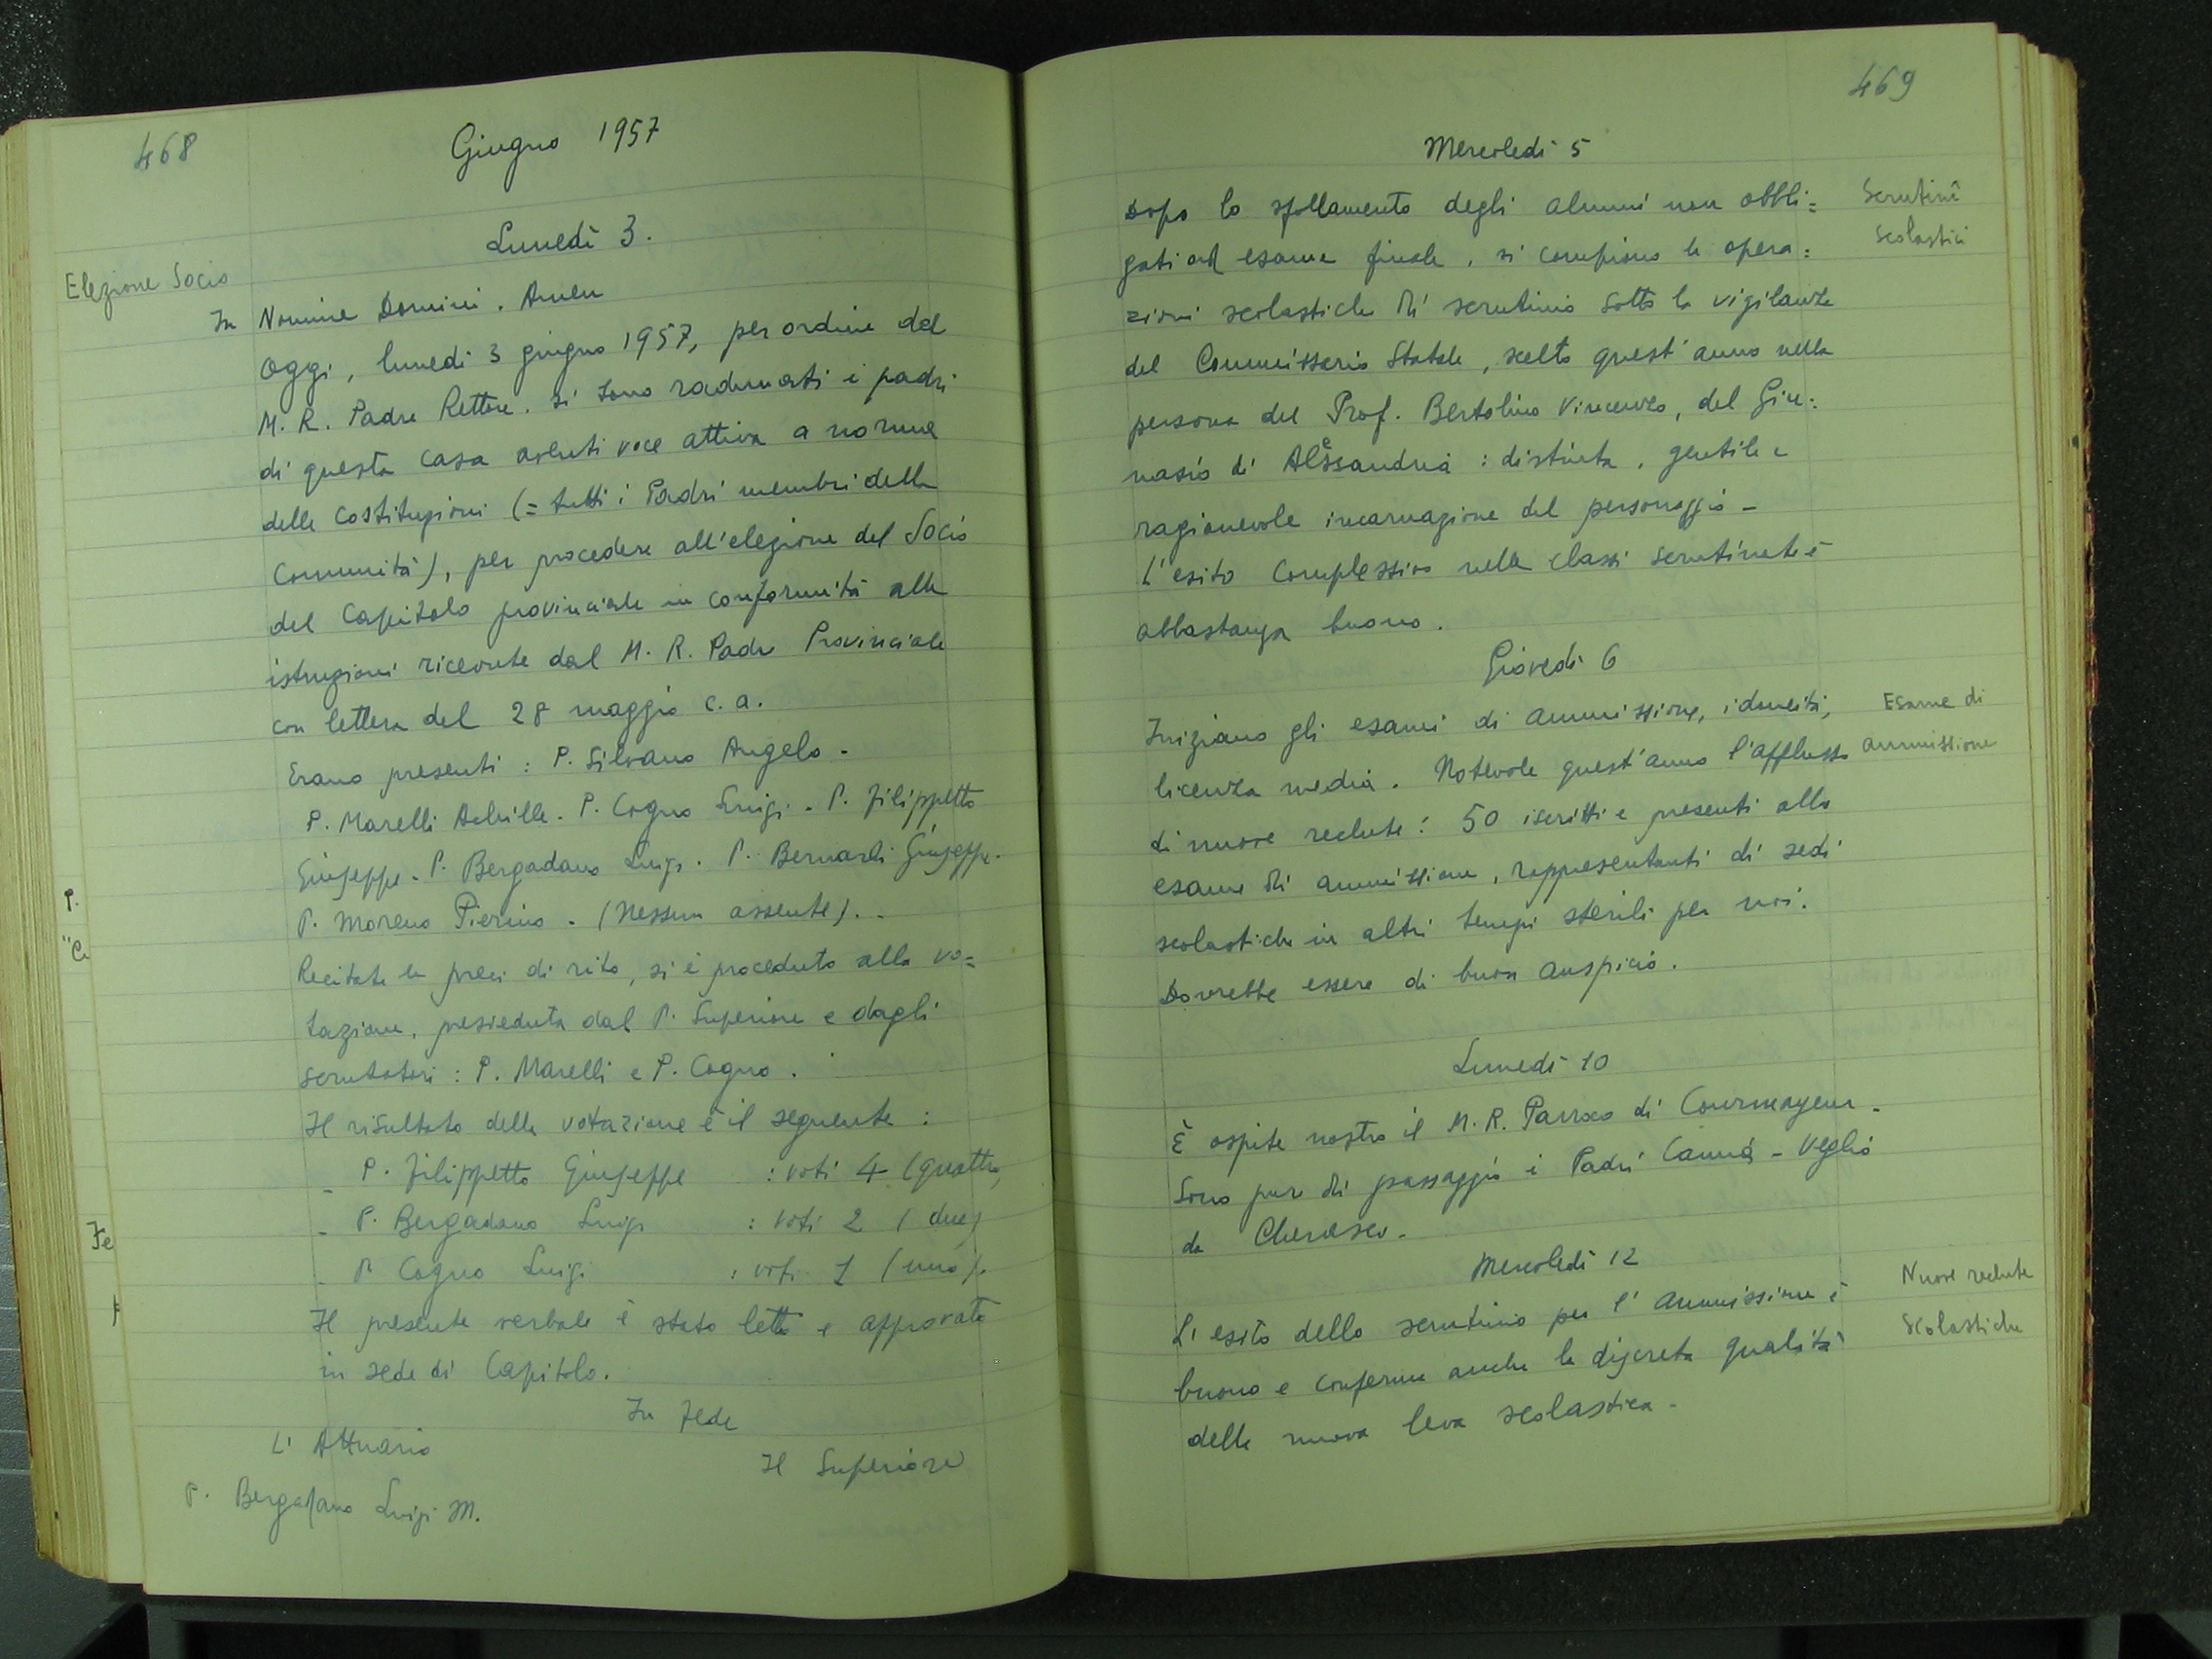 468
Giugno 1957
Lunedì 3.
Elezione Socio
In Nomine Domini. Amen
Oggi, lunedì 3 giugno 1957, per ordine del
M. R. Padre Rettore. si sono radunati i padri
di questa casa aventi voce attiva a norma
delle Costituzioni (= tutti i Padri membri della
Comunità), per procedere all'elezione del Socio
del Capitolo provinciale in conformità alle
istruzioni ricevute dal M. R. Padre Provinciale
con lettera del 28 maggio c. a.
Erano presenti : P. Silvano Angelo -
P. Marelli Achille - P. Cogno Luigi - P. Filippetto
Giuseppe - P. Bergadano Luigi - P. Bernardi Giuseppe -
P. Moreno Pierino - (Nessun assente). -
Recitate le preci di rito, si è proceduto alla vo=
tazione, presieduta dal P. Superiore e dagli
scrutatori : P. Marelli e P. Cogno.
Il risultato della votazione è il seguente :
- P. Filippetto Giuseppe : voti 4 (quattro)
- P. Bergadano Luigi : voti 2 (due)
- P. Cogno Luigi : voti 1 (uno).
Il presente verbale è stato letto e approvato
in sede di Capitolo.
In fede
L' Attuario
Il Superiore
P. Bergadano Luigi M.
P.
"C
Fe
469
Mercoledì 5
Scrutini
scolastici
Dopo lo sfollamento degli alunni non obbli=
gati ad esame finale, si compiono le opera=
zioni scolastiche di scrutinio sotto la vigilanza
del Commissario Statale, scelto quest'anno nella
persona del Prof. Bertolino Vincenzo, del Gin=
nasio di Alessandria : distinta, gentile e
ragionevole incarnazione del personaggio -
L'esito complessivo nelle classi scrutinate è
abbastanza buono.
Giovedì 6
Esame di
ammissione
Iniziano gli esami di ammissione, idoneità,
licenza media. Notevole quest'anno l'afflusso
di nuove reclute : 50 iscritti e presenti allo
esame di ammissione, rappresentanti di sedi
scolastiche in altri tempi sterili per noi.
Dovrebbe essere di buon auspicio.
Lunedì 10
È ospite nostro il M. R. Parroco di Courmayeur -
Sono pure di passaggio i Padri Cannà - Veglio
da Cherasco -
Mercoledì 12
Nuove reclute
Scolastiche
L'esito dello scrutinio per l'Ammissione è
buono e conferma anche la discreta qualità
della nuova leva scolastica -